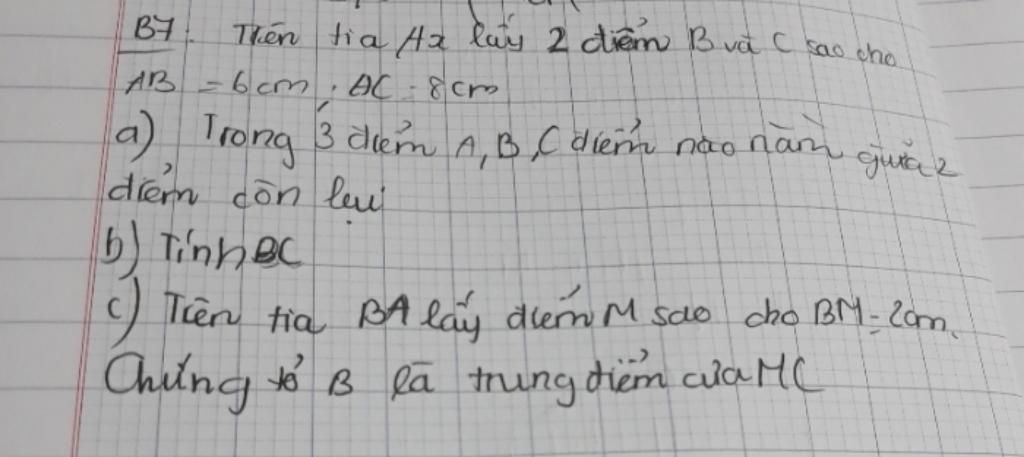 B7. Trên tia Ax lấy 2 điểm B và C sao cho
AB = 6cm; AC = 8cm
a) Trong 3 điểm A, B, C điểm nào nằm giữa 2
điểm còn lại
b) Tính BC
c) Trên tia BA lấy điểm M sao cho BM = 2cm.
Chứng tỏ B là trung điểm của MC